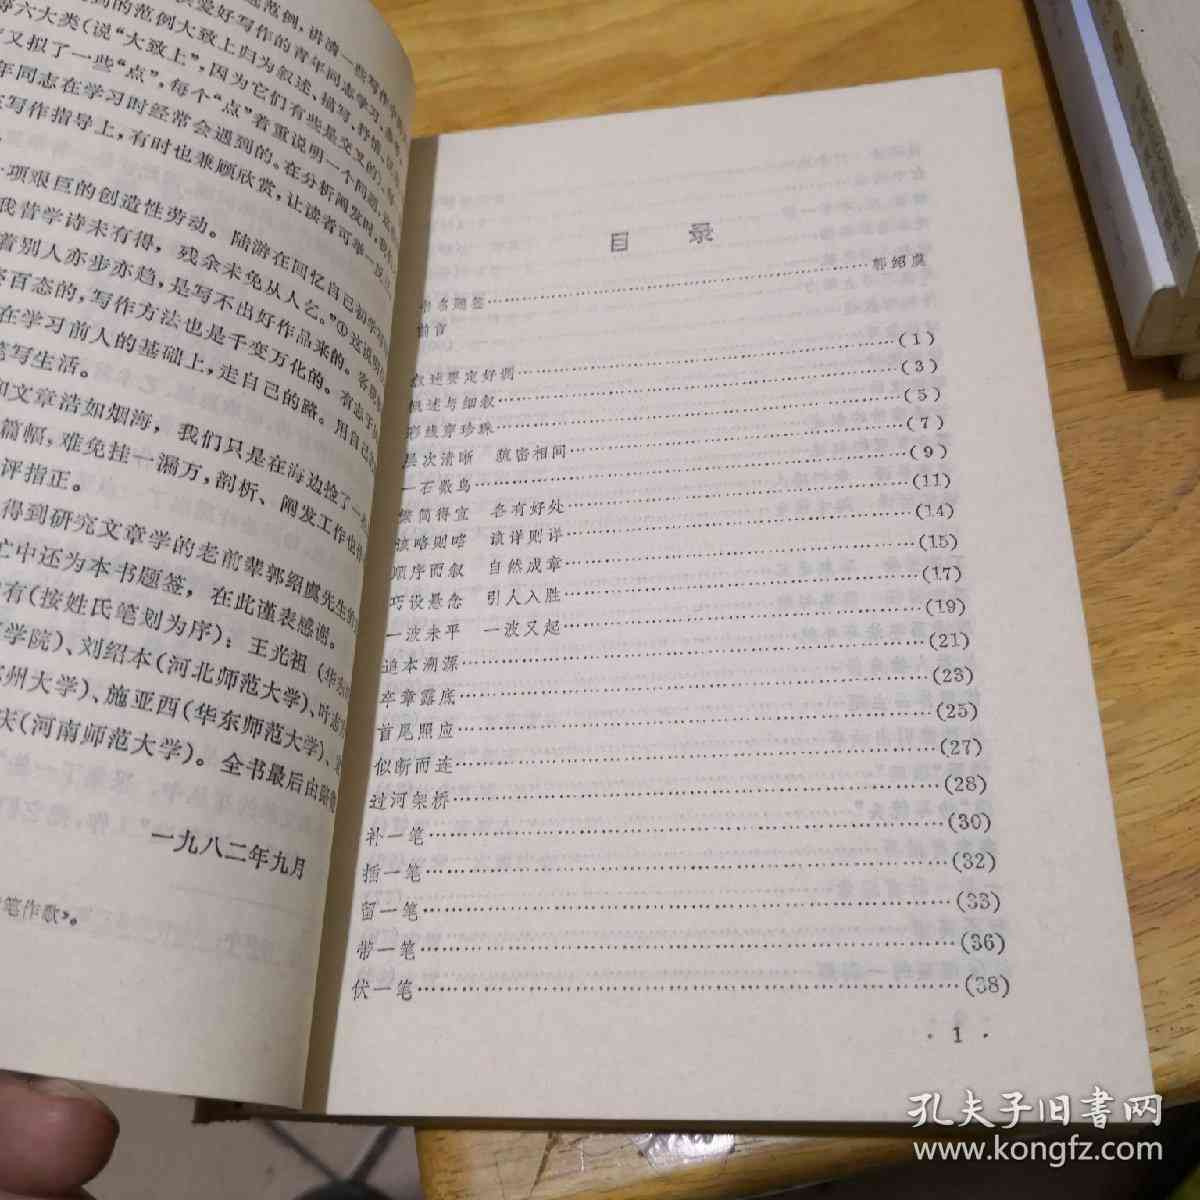 范例，讲清一些写作
爱好写作的青年同志学习
到的范例大致上归为叙述、描写、抒情
等六大类(说“大致上”，因为它们有些是交叉的)
又拟了一些“点”，每个“点”着重说明一个问题
年同志在学习时经常会遇到的。在分析阐发时
写作指导上，有时也兼顾欣赏，让读者可举一反
项艰巨的创造性劳动。陆游在回忆自己初学写
我昔学诗未有得，残余未免从人乞。”①这说明
着别人亦步亦趋，是写不出好作品来的。客观
百态的，写作方法也是千变万化的。有志于
在学习前人的基础上，走自己的路。用自己的
笔写生活。
和文章浩如烟海，我们只是在海边捡了一
篇幅，难免挂一漏万，剖析、阐发工作也
评指正。
得到研究文章学的老前辈郭绍虞先生的
忙中还为本书题签，在此谨表感谢。
有(按姓氏笔划为序)：王光祖(华东
学院)、刘绍本(河北师范大学)、叶志
州大学)、施亚西(华东师范大学)、
庆(河南师范大学)。全书最后由
一九八二年九月
笔作歌”。
目 录
书名题签……郭绍虞
前言
叙述要定好调……(1)
概述与细叙……(3)
彩线穿珍珠……(5)
层次清晰 疏密相间……(7)
一石数鸟……(9)
繁简得宜 各有好处……(11)
该略则略 该详则详……(14)
顺序而叙 自然成章……(15)
巧设悬念 引人入胜……(17)
一波未平 一波又起……(19)
追本溯源……(21)
卒章露底……(23)
首尾照应……(25)
似断而连……(27)
过河架桥……(28)
补一笔……(30)
插一笔……(32)
留一笔……(33)
带一笔……(36)
伏一笔……(38)
· 1 ·
孔夫子旧書网
www.kongfz.com